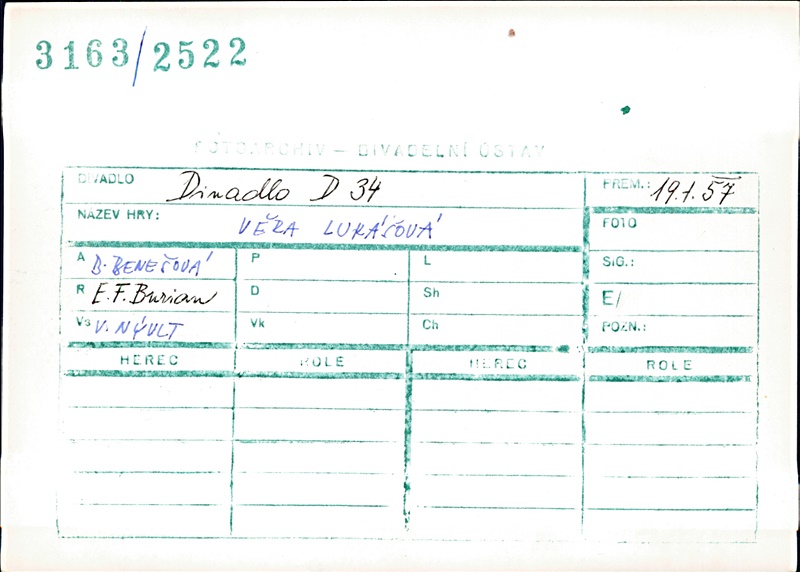 3163/2522
FOTOARCHIV – DIVADELNÍ ÚSTAV
DIVADLO Divadlo D 34 PREM.: 19.1.57
NÁZEV HRY: VĚRA LUKÁŠOVÁ FOTO
A B. BENEŠOVÁ P L SIG.:
R E.F. Burian D Sh E/
Vs V. NÝVLT Vk Ch POZN.:
HEREC ROLE HEREC ROLE